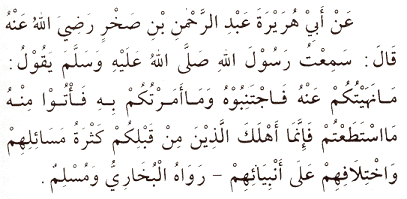 عَنْ أَبِيْ هُرَيْرَةَ عَبْدِ الرَّحْمٰنِ بْنِ صَخْرٍ رَضِيَ اللهُ عَنْهُ
قَالَ: سَمِعْتُ رَسُوْلَ اللهِ صَلَّى اللهُ عَلَيْهِ وَسَلَّمَ يَقُوْلُ:
مَانَهَيْتُكُمْ عَنْهُ فَاجْتَنِبُوْهُ وَمَاأَمَرْتُكُمْ بِهِ فَأْتُوْا مِنْهُ
مَااسْتَطَعْتُمْ فَإِنَّمَا أَهْلَكَ الَّذِيْنَ مِنْ قَبْلِكُمْ كَثْرَةُ مَسَائِلِهِمْ
وَاخْتِلَافِهِمْ عَلَى أَنْبِيَائِهِمْ – رَوَاهُ الْبُخَارِيُّ وَمُسْلِمٌ.